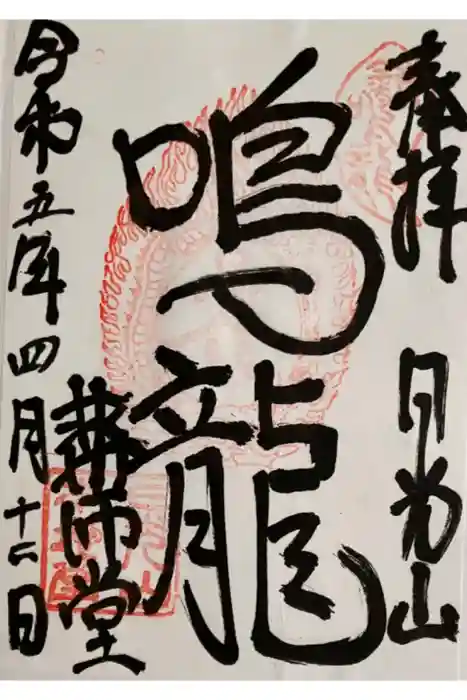 奉拝
日光山
鳴龍
薬師堂
令和五年四月十六日